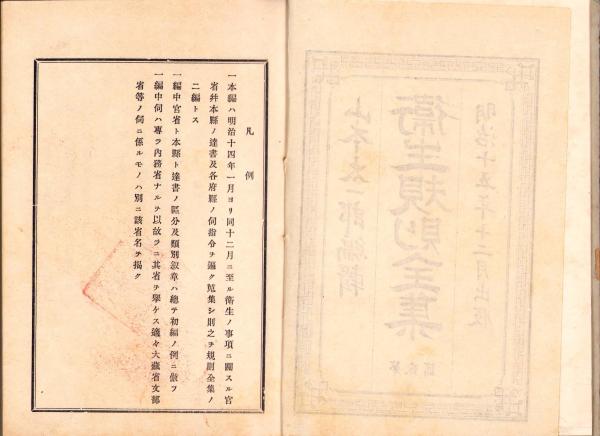 凡例
一本編ハ明治十四年一月ヨリ同十二月ニ至ル衛生ノ事項ニ關スル官
省幷本縣ノ達書及各府縣ノ伺指令ヲ汎ク蒐集シ則之ヲ規則全集ノ
二編トス
一編中官省ト本縣ト達書ノ區分及類別叙章ハ總テ初編ノ例ニ倣フ
一編中伺ハ專ラ內務省ナルヲ以故ラニ其省ヲ擧ケス適々大藏省文部
省等ノ伺ニ係ルモノハ別ニ該省名ヲ揭ク
明治十五年十二月出版
衛生規則全集
山本 郎編輯